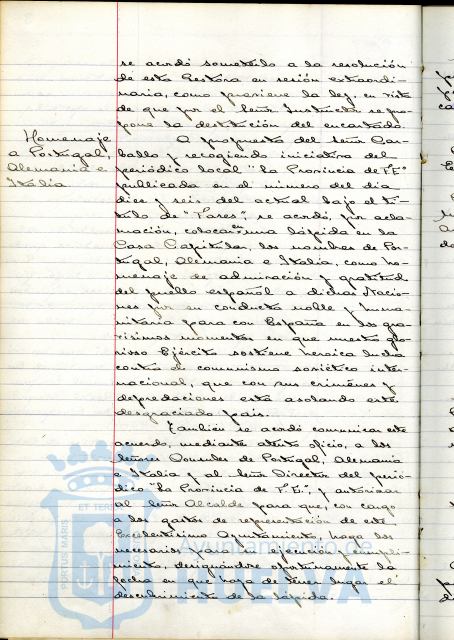 se acordó someterlo a la resolución
de esta Gestora en sesión extraordi-
naria, como previene la ley, en vista
de que por el Señor Instructor se pro-
pone la destitución del encartado.
Homenaje
a Portugal,
Alemania e
Italia
A propuesta del Señor Car-
ballo y recogiendo iniciativa del
periódico local "La Provincia de F.E."
publicada en el número del día
diez y seis del actual bajo el tí-
tulo de "Pares", se acordó, por acla-
mación, colocar en una lápida en la
Casa Capitular, los nombres de Por-
tugal, Alemania e Italia, como ho-
menaje de admiración y gratitud
del pueblo español a dichas Nacio-
nes por su conducta noble y huma-
nitaria para con España en los gra-
vísimos momentos en que nuestro glo-
rioso Ejército sostiene heroica lucha
contra el comunismo soviético inter-
nacional, que con sus crímenes y
depredaciones está asolando este
desgraciado país.
También se acordó comunicar este
acuerdo, mediante atento oficio, a los
Señores Cónsules de Portugal, Alemania
e Italia y al Señor Director del perió-
dico "La Provincia de F.E.", y autorizar
al Señor Alcalde para que, con cargo
a los gastos de representación de este
Excelentísimo Ayuntamiento, haga los
necesarios para la ejecución y cumpli-
miento, designándose oportunamente la
fecha en que haya de tener lugar el
descubrimiento de la lápida.
PORTUS MARIS
ET TERR
Ayuntamiento de
HUELVA